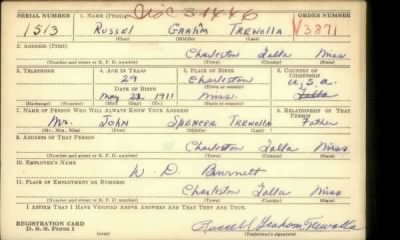 SERIAL NUMBER
1. NAME (Print)
ORDER NUMBER
1513
RUSSEL GRAHAM TREWOLLA
V3871
(First) (Middle) (Last)
2. ADDRESS (Print)
Charleston Talla Miss
(Number and street or R. F. D. number) (Town) (County) (State)
3. TELEPHONE
4. AGE IN YEARS
5. PLACE OF BIRTH
6. COUNTRY OF CITIZENSHIP
29
Charleston
(Town or county)
U.S.a.
DATE OF BIRTH
May 1911
Miss.
Talla
(Exchange) (Number)
(Mo.) (Day) (Yr.)
(State or country)
7. NAME OF PERSON WHO WILL ALWAYS KNOW YOUR ADDRESS
8. RELATIONSHIP OF THAT PERSON
Mr. JOHN SPENCER TREWOLLA
Father
(Mr., Mrs., Miss) (First) (Middle) (Last)
9. ADDRESS OF THAT PERSON
Charleston Talla Miss
(Number and street or R. F. D. number) (Town) (County) (State)
10. EMPLOYER'S NAME
W. D. Burnett
11. PLACE OF EMPLOYMENT OR BUSINESS
Charleston Talla Miss
(Number and street or R. F. D. number) (Town) (County) (State)
I AFFIRM THAT I HAVE VERIFIED ABOVE ANSWERS AND THAT THEY ARE TRUE.
REGISTRATION CARD
D. S. S. Form 1
Russell Graham Trewolla
(Registrant's signature)